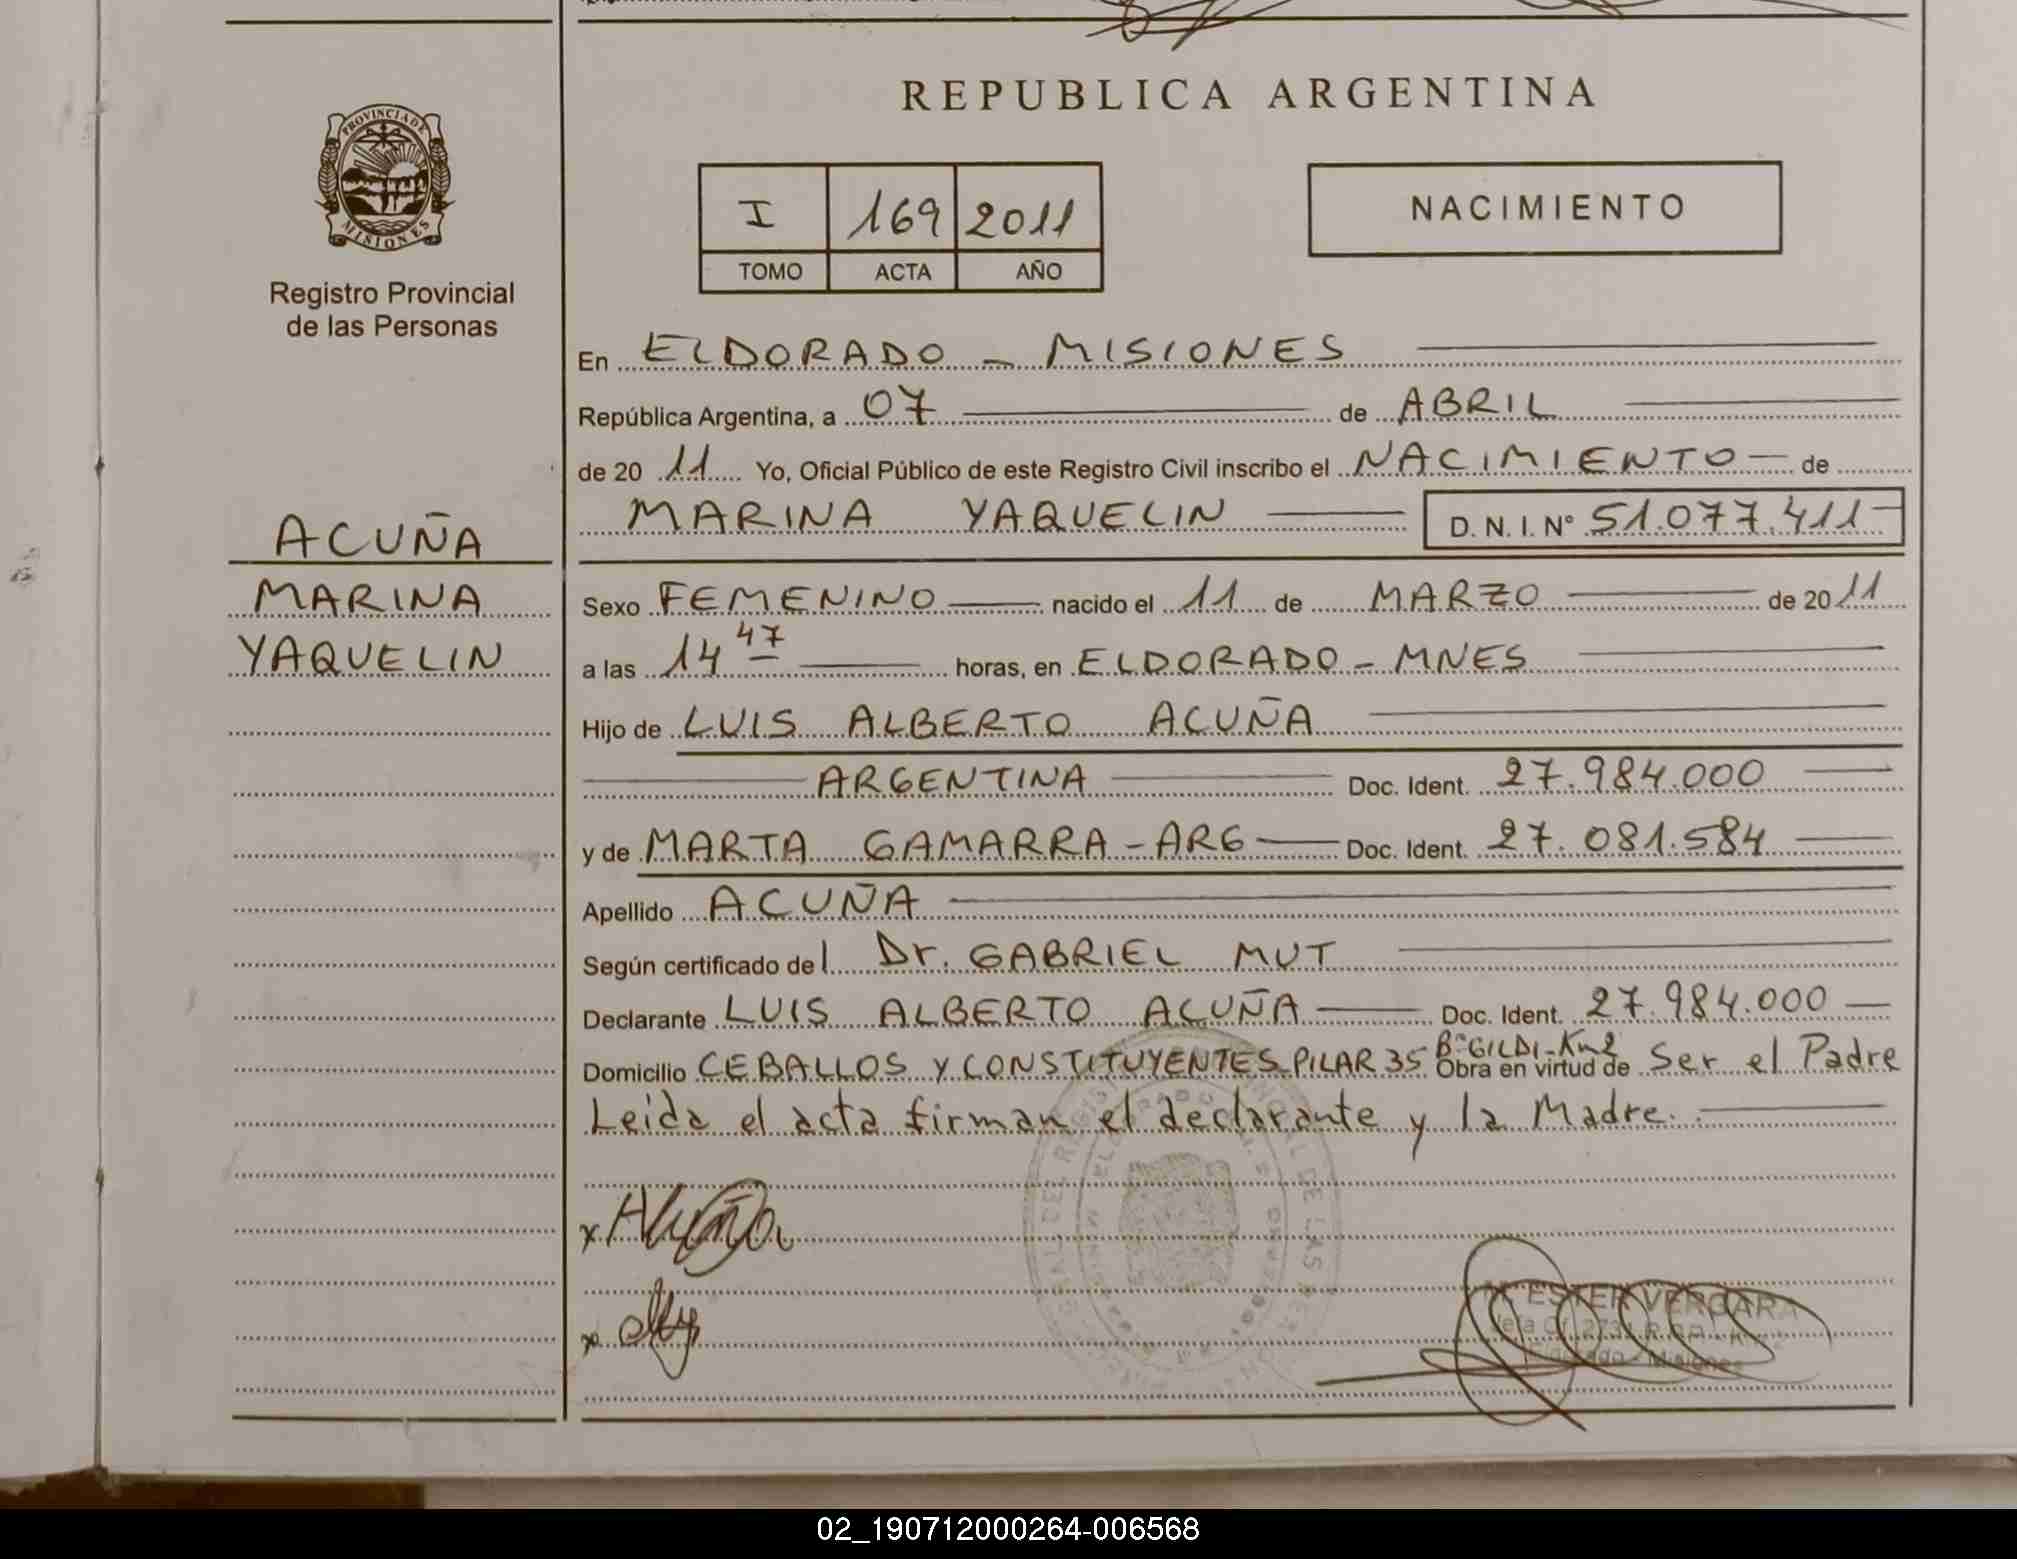 REPUBLICA ARGENTINA
PROVINCIA DE
MISIONES
Registro Provincial
de las Personas
I 169 2011
TOMO ACTA AÑO
NACIMIENTO
En ELDORADO - MISIONES
República Argentina, a 07 de ABRIL
de 20 11 Yo, Oficial Público de este Registro Civil inscribo el NACIMIENTO de
MARINA YAQUELIN D. N. I. N° 51.077.411
ACUÑA
MARINA
YAQUELIN
Sexo FEMENINO nacido el 11 de MARZO de 20 11
a las 14 47 horas, en ELDORADO - MNES
Hijo de LUIS ALBERTO ACUÑA
ARGENTINA Doc. Ident. 27.984.000
y de MARTA GAMARRA - ARG Doc. Ident. 27.081.584
Apellido ACUÑA
Según certificado del Dr. GABRIEL MUT
Declarante LUIS ALBERTO ACUÑA Doc. Ident. 27.984.000
Domicilio CEBALLOS Y CONSTITUYENTES PILAR 35 B° GILDI - Km 2 Obra en virtud de Ser el Padre
Leida el acta firman el declarante y la Madre.
x Acuña
x
ESTER VERGARA
Eldorado - Misiones
02_190712000264-006568